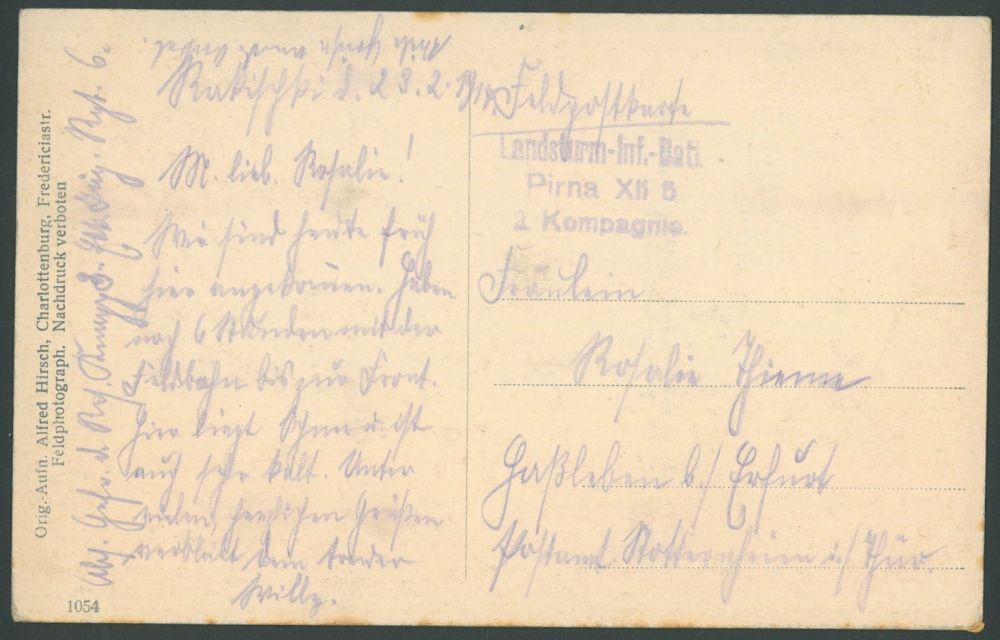 Rakischki d. 23.2.
M. lieb. Rosalie!
Wir sind heute früh
hier angekommen. Haben
noch 6 Stunden mit der
Feldbahn bis zur Front.
Hier liegt Schnee u. ist
auch sehr kalt. Unter
vielen herzlichen Grüßen
verbleibt Dein Bruder
Willy.
Abs. Gefr. d. Res. Rgt. 6.
Orig.-Aufn. Alfred Hirsch, Charlottenburg, Fredericiastr.
Feldphotograph. Nachdruck verboten
1054
Feldpostkarte
Landsturm-Inf.-Batl.
Pirna XII 6
Kompagnie.
Fräulein
Rosalie Thieme
Haßleben b/ Erfurt
Postamt Stotternheim i/ Thür.